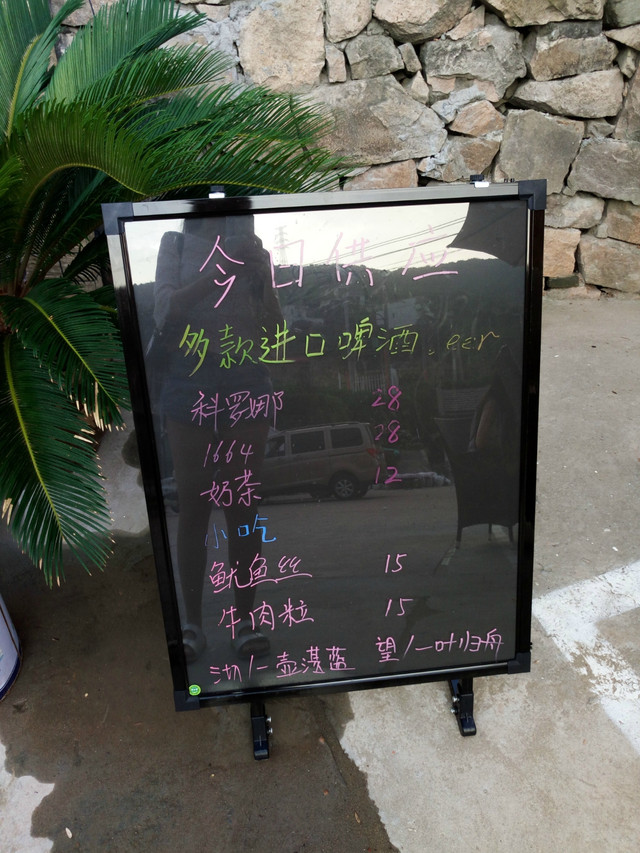 今日供应
多款进口啤酒.eer
科罗娜 28
1664 28
奶茶 12
小吃
鱿鱼丝 15
牛肉粒 15
沏/一壶湛蓝 望/一叶归舟